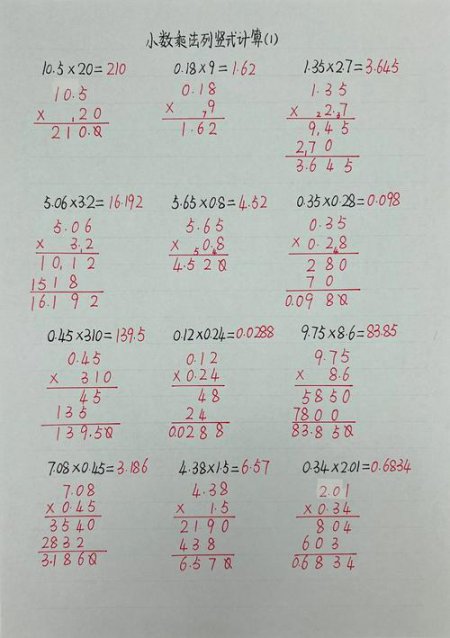 小数乘法列竖式计算(1)
10.5×20=210
0.18×9=1.62
1.35×2.7=3.645
10.5
× 20
210.0
0.18
× 9
1.62
1.35
× 2.7
945
270
3.645
5.06×3.2=16.192
5.65×0.8=4.52
0.35×0.28=0.098
5.06
× 3.2
1012
1518
16.192
5.65
× 0.8
4.520
0.35
×0.28
280
70
0.0980
0.45×310=139.5
0.12×0.24=0.0288
9.75×8.6=83.85
0.45
× 310
45
135
139.50
0.12
×0.24
48
24
0.0288
9.75
× 8.6
5850
7800
83.850
7.08×0.45=3.186
4.38×1.5=6.57
0.34×2.01=0.6834
7.08
×0.45
3540
2832
3.1860
4.38
× 1.5
2190
438
6.570
2.01
×0.34
804
603
0.6834